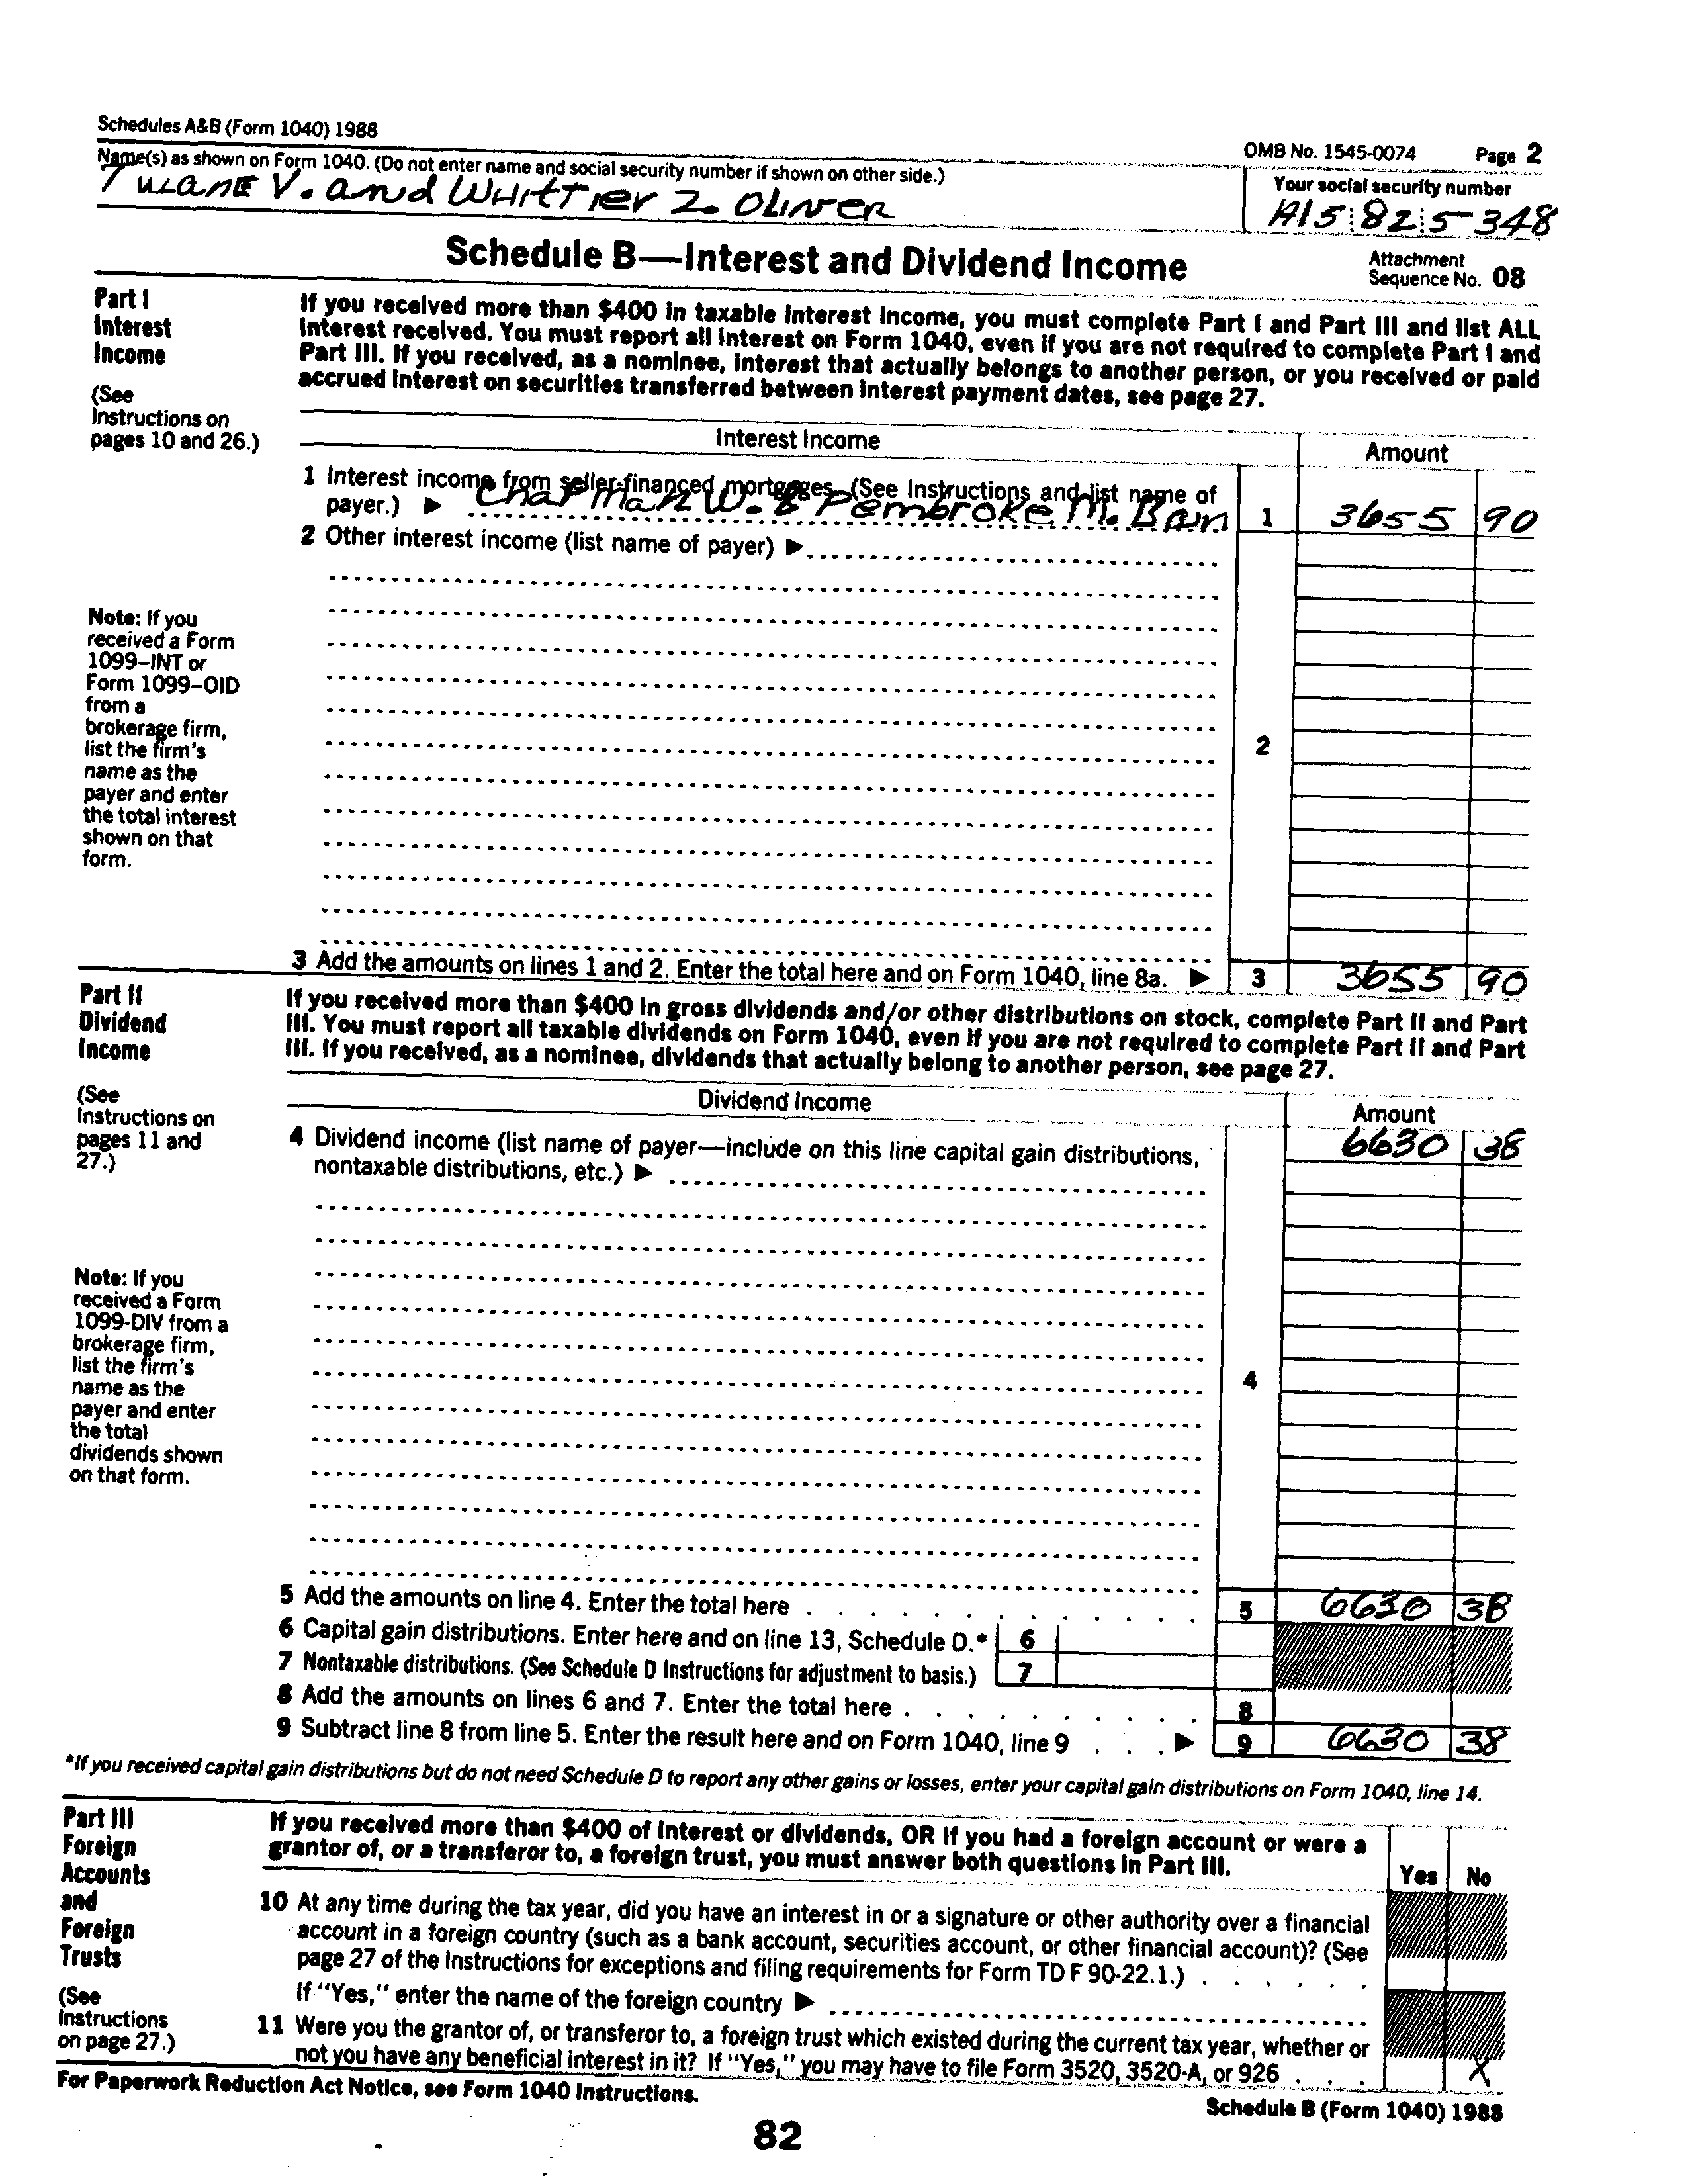 Schedules A&B (Form 1040) 1988
OMB No. 1545-0074 Page 2
Name(s) as shown on Form 1040. (Do not enter name and social security number if shown on other side.)
Your social security number
Tulane V. and Whittier Z. Oliver
A15 82 5348
Schedule B—Interest and Dividend Income
Attachment
Sequence No. 08
Part I
Interest
Income
(See
Instructions on
pages 10 and 26.)
If you received more than $400 in taxable interest income, you must complete Part I and Part III and list ALL
interest received. You must report all interest on Form 1040, even if you are not required to complete Part I and
Part III. If you received, as a nominee, interest that actually belongs to another person, or you received or paid
accrued interest on securities transferred between interest payment dates, see page 27.
Interest Income
Amount
1 Interest income from seller-financed mortgages. (See Instructions and list name of
payer.) ▶ Chapman W. & Pembroke M. Bain 1 3655 90
2 Other interest income (list name of payer) ▶
Note: If you
received a Form
1099–INT or
Form 1099–OID
from a
brokerage firm,
list the firm's
name as the
payer and enter
the total interest
shown on that
form.
2
3 Add the amounts on lines 1 and 2. Enter the total here and on Form 1040, line 8a. ▶ 3 3655 90
Part II
Dividend
Income
(See
Instructions on
pages 11 and
27.)
If you received more than $400 in gross dividends and/or other distributions on stock, complete Part II and Part
III. You must report all taxable dividends on Form 1040, even if you are not required to complete Part II and Part
III. If you received, as a nominee, dividends that actually belong to another person, see page 27.
Dividend Income
Amount
4 Dividend income (list name of payer—include on this line capital gain distributions, 6630 38
nontaxable distributions, etc.) ▶
Note: If you
received a Form
1099-DIV from a
brokerage firm,
list the firm's
name as the
payer and enter
the total
dividends shown
on that form.
4
5 Add the amounts on line 4. Enter the total here . . . . . . . . . . . . 5 6630 38
6 Capital gain distributions. Enter here and on line 13, Schedule D.* 6
7 Nontaxable distributions. (See Schedule D Instructions for adjustment to basis.) 7
8 Add the amounts on lines 6 and 7. Enter the total here . . . . . . . . . 8
9 Subtract line 8 from line 5. Enter the result here and on Form 1040, line 9 . . . ▶ 9 6630 38
*If you received capital gain distributions but do not need Schedule D to report any other gains or losses, enter your capital gain distributions on Form 1040, line 14.
Part III
Foreign
Accounts
and
Foreign
Trusts
(See
Instructions
on page 27.)
If you received more than $400 of interest or dividends, OR if you had a foreign account or were a
grantor of, or a transferor to, a foreign trust, you must answer both questions in Part III.
Yes No
10 At any time during the tax year, did you have an interest in or a signature or other authority over a financial
account in a foreign country (such as a bank account, securities account, or other financial account)? (See
page 27 of the Instructions for exceptions and filing requirements for Form TD F 90-22.1.) . . . . . .
If "Yes," enter the name of the foreign country ▶
11 Were you the grantor of, or transferor to, a foreign trust which existed during the current tax year, whether or
not you have any beneficial interest in it? If "Yes," you may have to file Form 3520, 3520-A, or 926 . . . X
For Paperwork Reduction Act Notice, see Form 1040 Instructions.
Schedule B (Form 1040) 1988
82